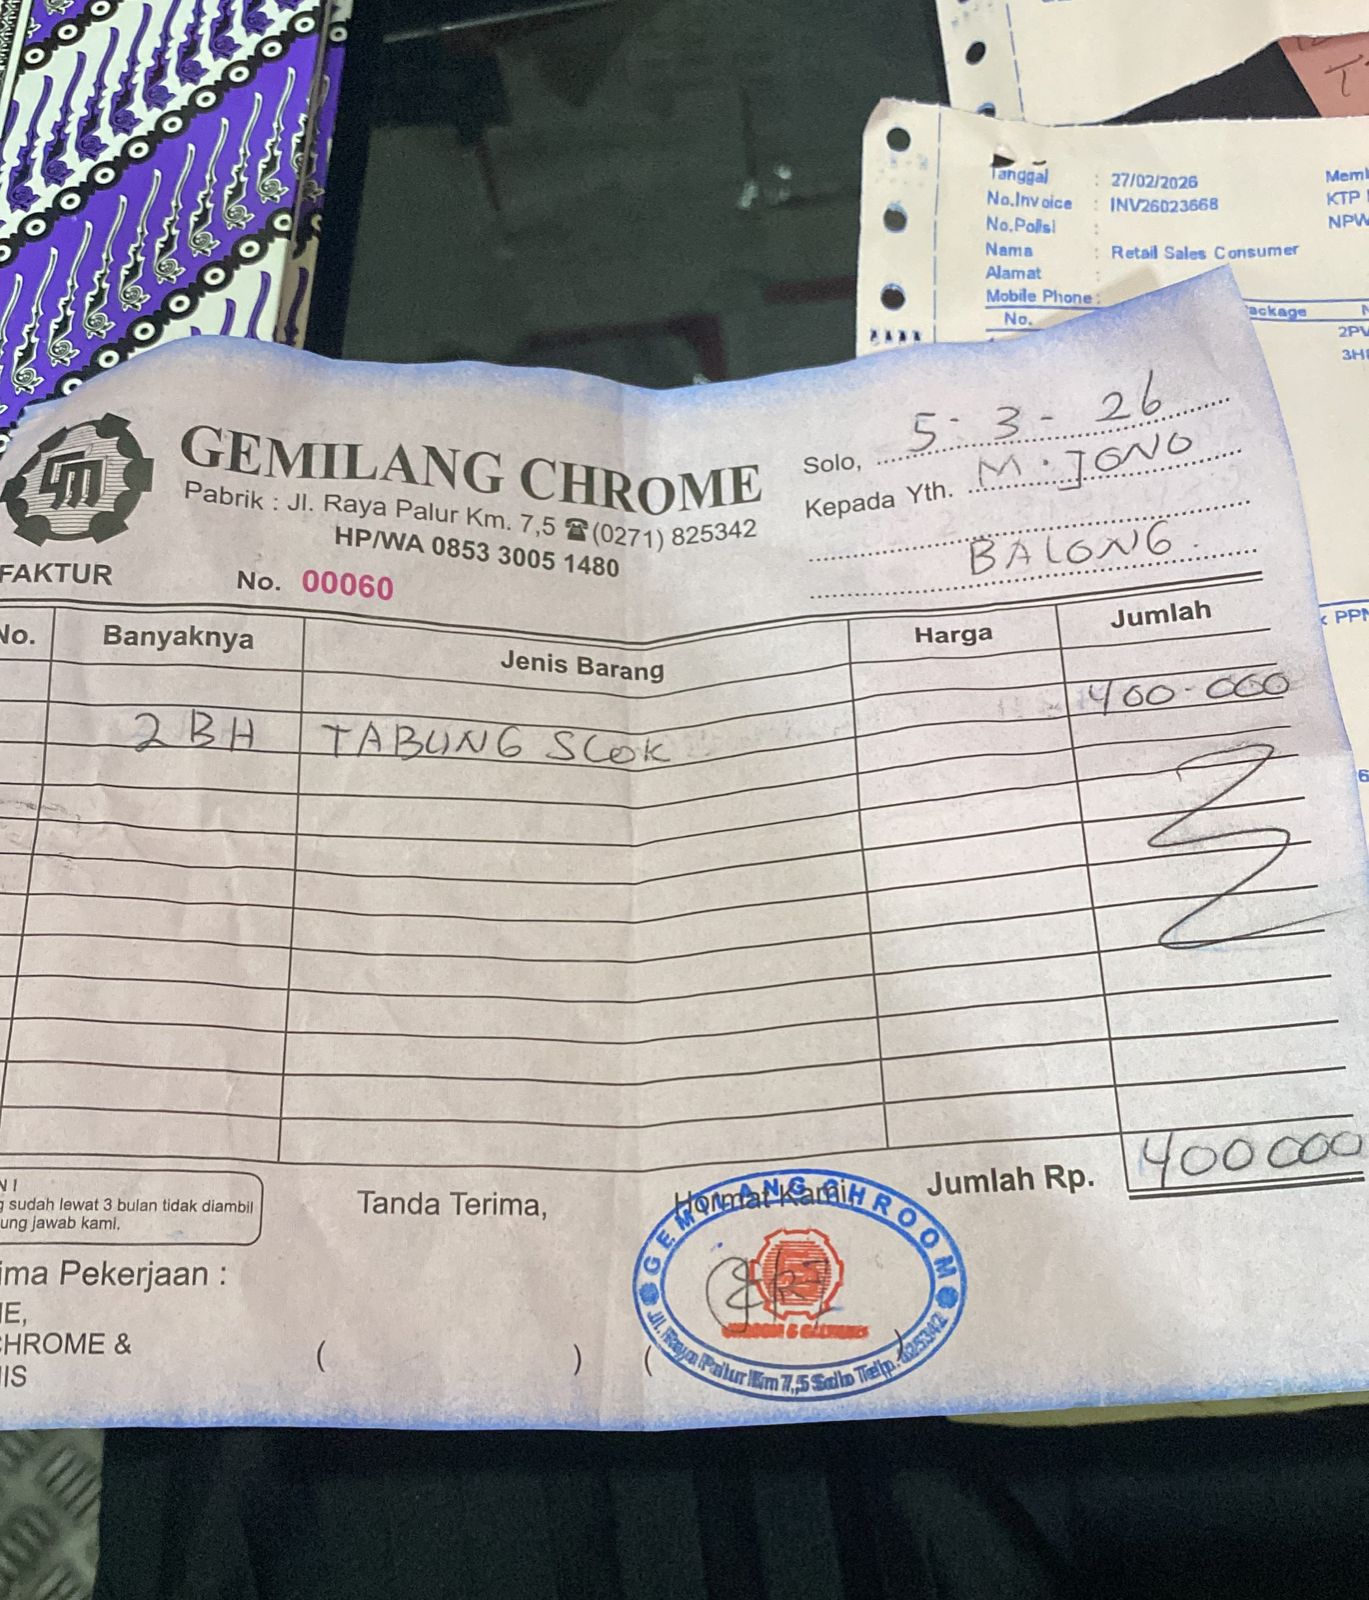 Tanggal : 27/02/2026
No.Invoice : INV26023668
No.Polisi :
Nama : Retail Sales Consumer
Alamat :
Mobile Phone :
No.
ackage
Memb
KTP
NPW
2PV
3H
PPN
GEMILANG CHROME
Pabrik : Jl. Raya Palur Km. 7,5 ☎ (0271) 825342
HP/WA 0853 3005 1480
FAKTUR No. 00060
Solo, 5-3-26
Kepada Yth. M. JONO
BALONG.
No. Banyaknya Jenis Barang Harga Jumlah
2 BH TABUNG SCOK 400.000
Jumlah Rp. 400 000
N !
g sudah lewat 3 bulan tidak diambil
ung jawab kami.
ima Pekerjaan :
E,
CHROME &
IS
Tanda Terima,
( )
Hormat Kami,
( )
GEMILANG CHROOM
Jl. Raya Palur Km 7,5 Solo Telp. 825342